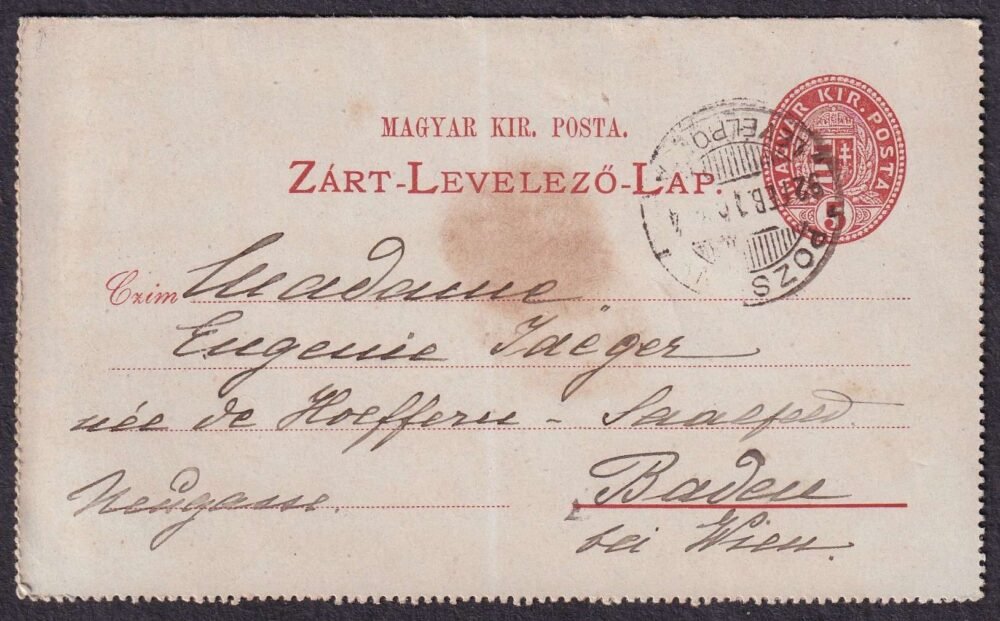 MAGYAR KIR. POSTA.
ZÁRT-LEVELEZŐ-LAP.
MAGYAR KIR. POSTA
5
POZS
TÁVELPO
92 FEB.
4
Czim Madame
Eugenie Jaëger
née de Hoeffern - Saalfeld.
Neugasse. Baden
bei Wien.